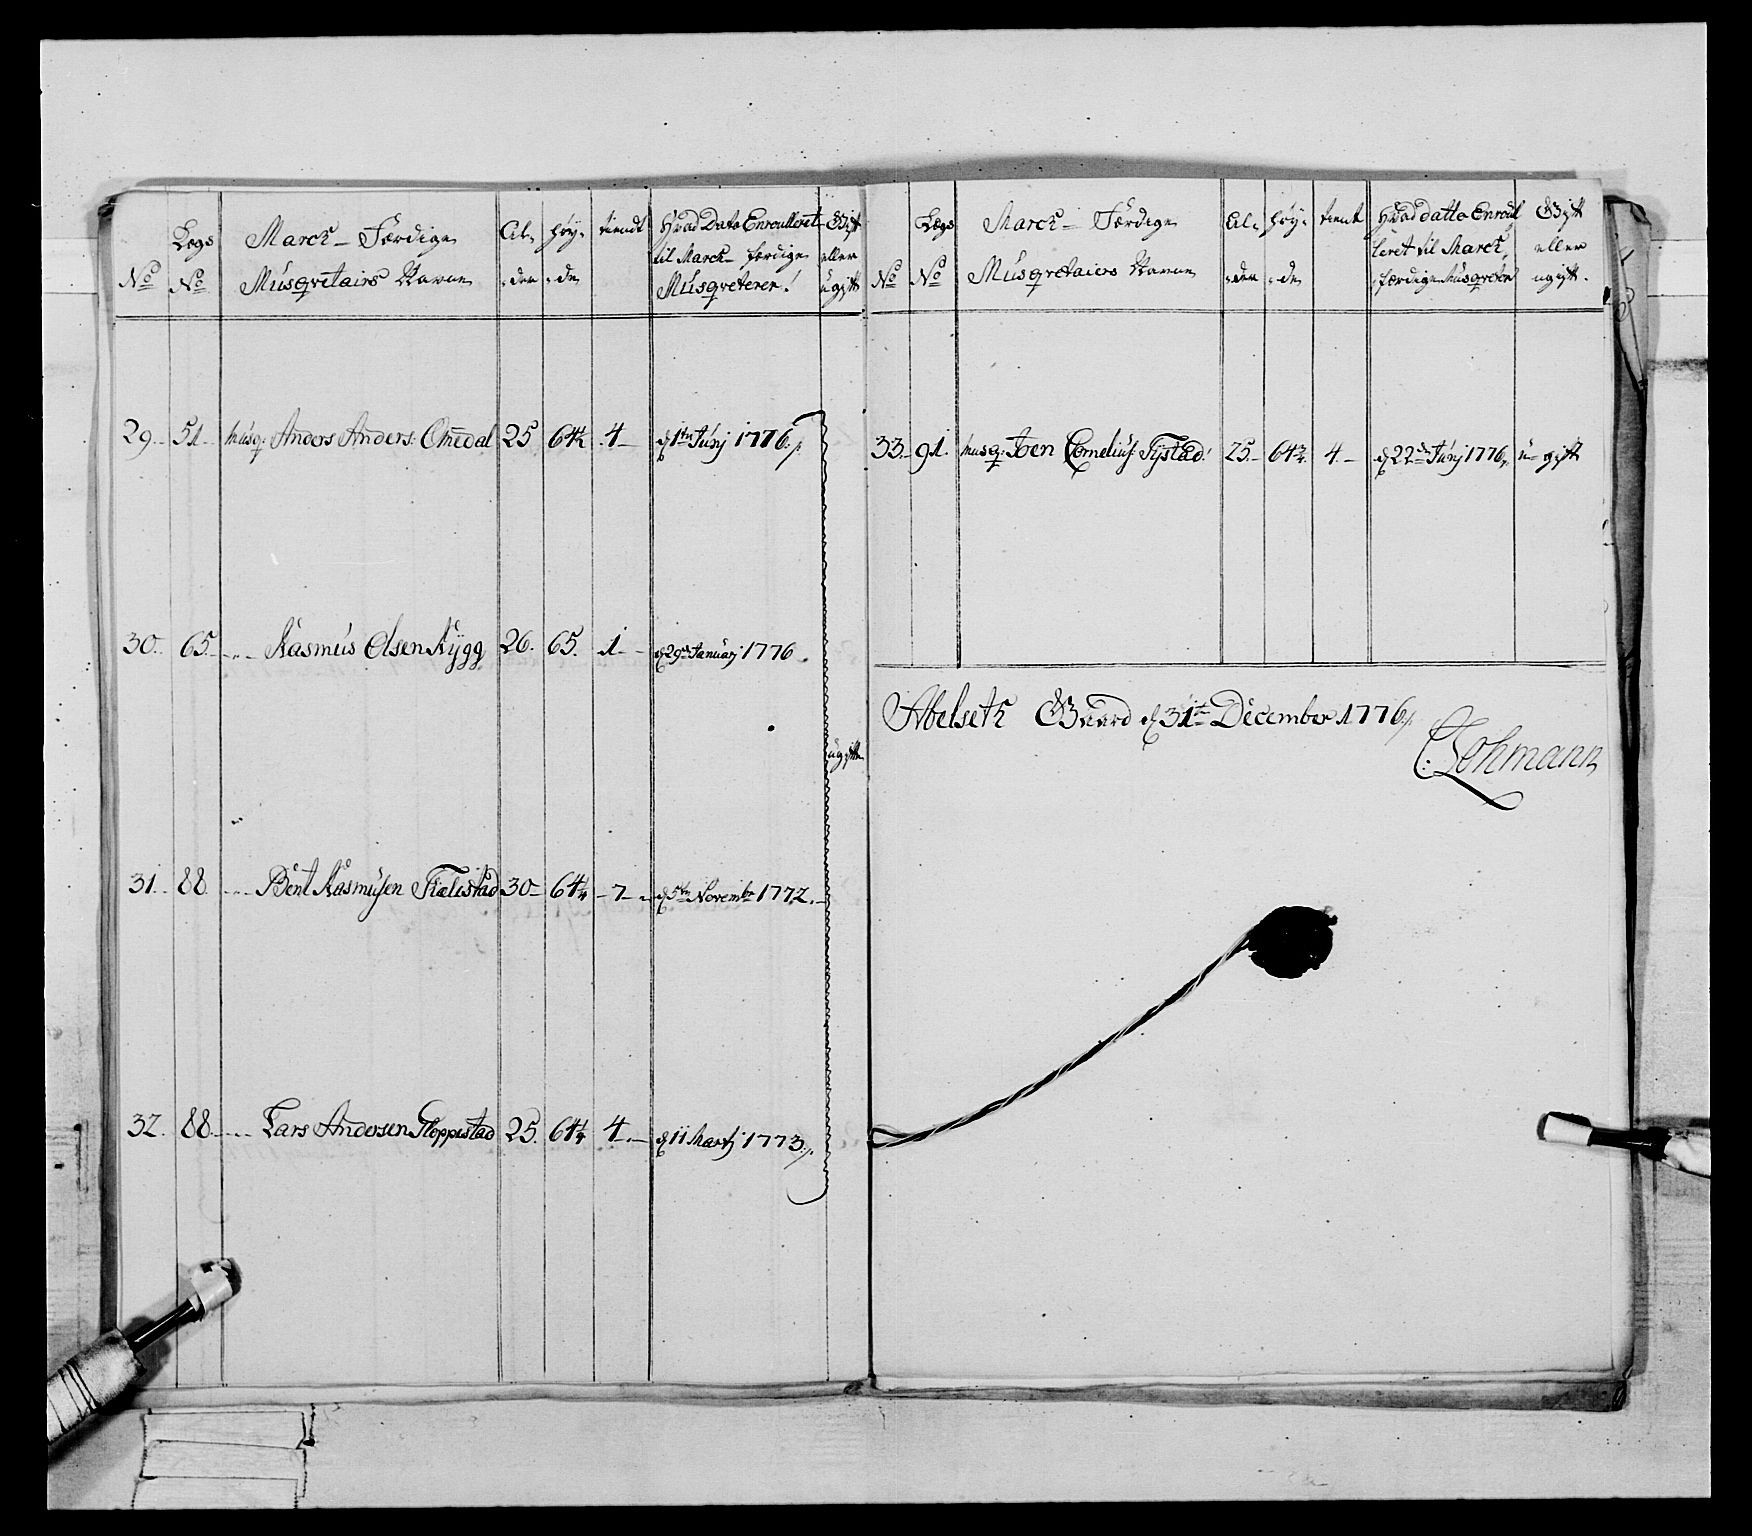 No
Legs No
Marck- Færdige
Musqvetairs Navne
Al- der
Høy- de
tiendt
Hvad Dato Enroulleret
til Marck- færdige
Musqveterer!
Gift
eller
ugift
29. 51. Musq: Anders Anders: Omedal 25 64½ 4 d 1ten Junj 1776
30. 65. Rasmus Olsen Rygg 26. 65. 1 d 29de Januarj 1776.
ugift
31. 88. Bent Rasmusen 30 64¼ 7 d 5te Novembr 1772.
32. 88. Lars Andersen Gloppestad 25. 64¼ 4 d 11 Martj 1773.
No
Legs No
Marck- Færdige
Musqvetairers Navne
Al- der
Høy- de
tient
Hvad datto Enroul
leret til Marck
færdige Musqveterer
Gift
eller
ugift.
33. 91. Musq: Joen Cornelius. 25 64¾ 4. d 22de Junj 1776. u-gift
Abelseth Gaard d 31te December 1776
C: Lohmann